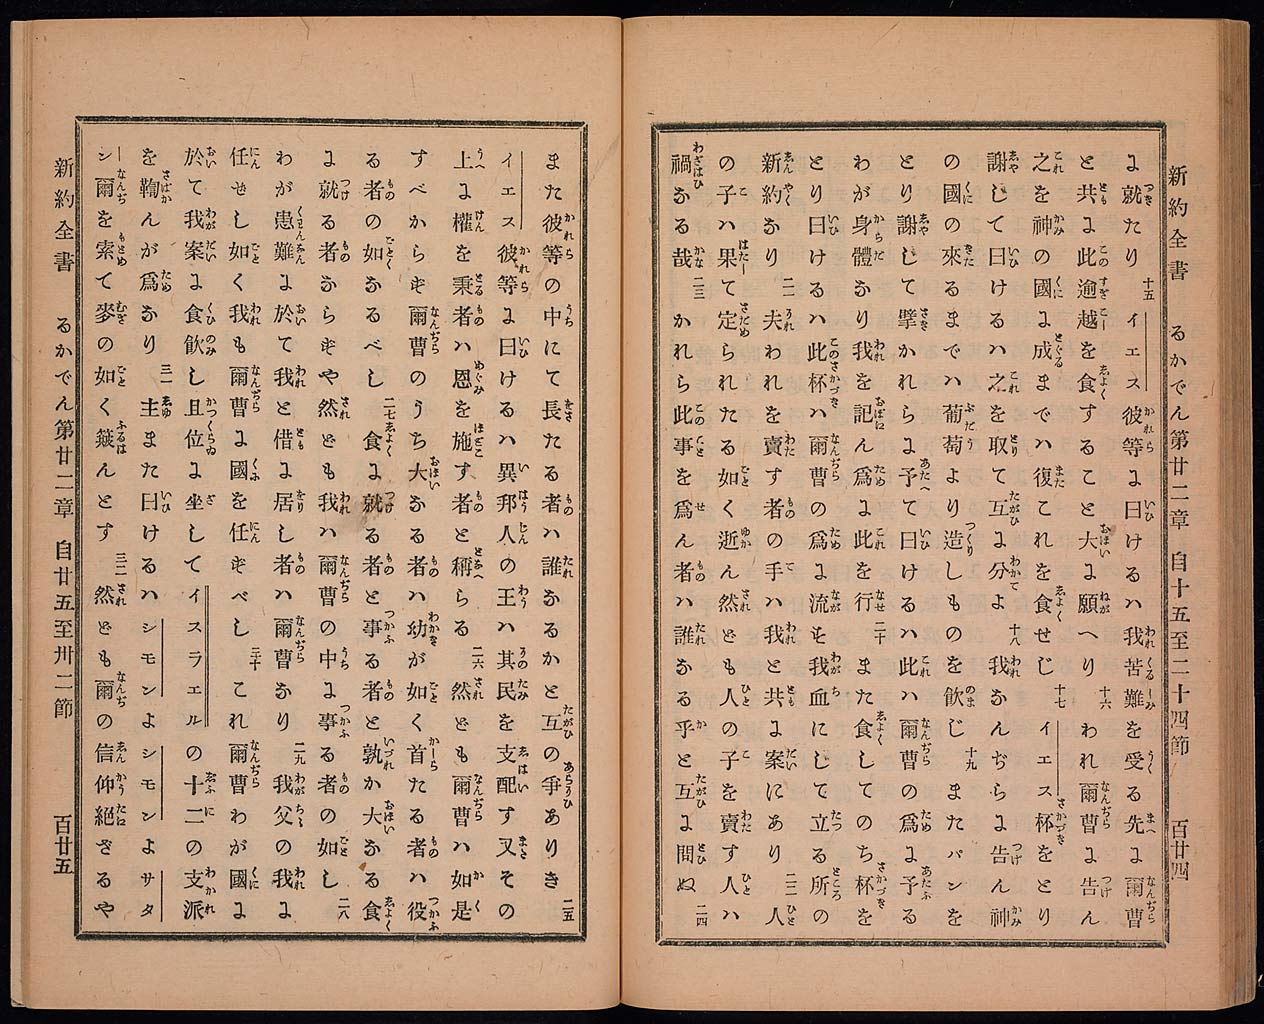 新約全書 るかでん第廿二章 自十五至二十四節 百廿四
よ就たり 十五 イエス彼等よ曰けるハ我苦難を受る先よ爾曹
と共よ此逾越を食すること大よ願へり 十六 われ爾曹よ告ん
之を神の國よ成までハ復これを食せじ 十七 イエス杯をとり
謝して曰けるハ之を取て互よ分てよ 十八 我なんぢらよ告ん神
の國の來るまでハ葡萄より造しものを飮じ 十九 またパンを
とり謝して擘かれらよ予て曰けるハ此ハ爾曹の爲よ予る
わが身體なり我を記ん爲よ此を行 二十 また食してのち杯を
とり曰けるハ此杯ハ爾曹の爲よ流す我血にして立る所の
新約なり 二一 夫われを賣す者の手ハ我と共よ案にあり 二二 人
の子ハ果て定られたる如く逝ん然ども人の子を賣す人ハ
禍なる哉 二三 かれら此事を爲ん者ハ誰なる乎と互よ問ぬ 二四
また彼等の中にて長たる者ハ誰なるかと互の爭ありき 二五
イエス彼等よ曰けるハ異邦人の王ハ其民を支配す又その
上よ權を秉者ハ恩を施す者と稱らる 二六 然ども爾曹ハ如是
すべからず爾曹のうち大なる者ハ幼が如く首たる者ハ役
る者の如なるべし 二七 食よ就る者と事る者と孰か大なる食
よ就る者ならずや然ども我ハ爾曹の中よ事る者の如し 二八
わが患難よ於て我と偕よ居し者ハ爾曹なり 二九 我父の我よ
任せし如く我も爾曹よ國を任ずべし 三十 これ爾曹わが國よ
於て我案よ食飮し且位よ坐してイスラエルの十二の支派
を鞫んが爲なり 三一 主また曰けるハシモンよシモンよサタ
ン爾を索て麥の如く簸んとす 三二 然ども爾の信仰絕ざるや
新約全書 るかでん第廿二章 自廿五至卅二節 百廿五